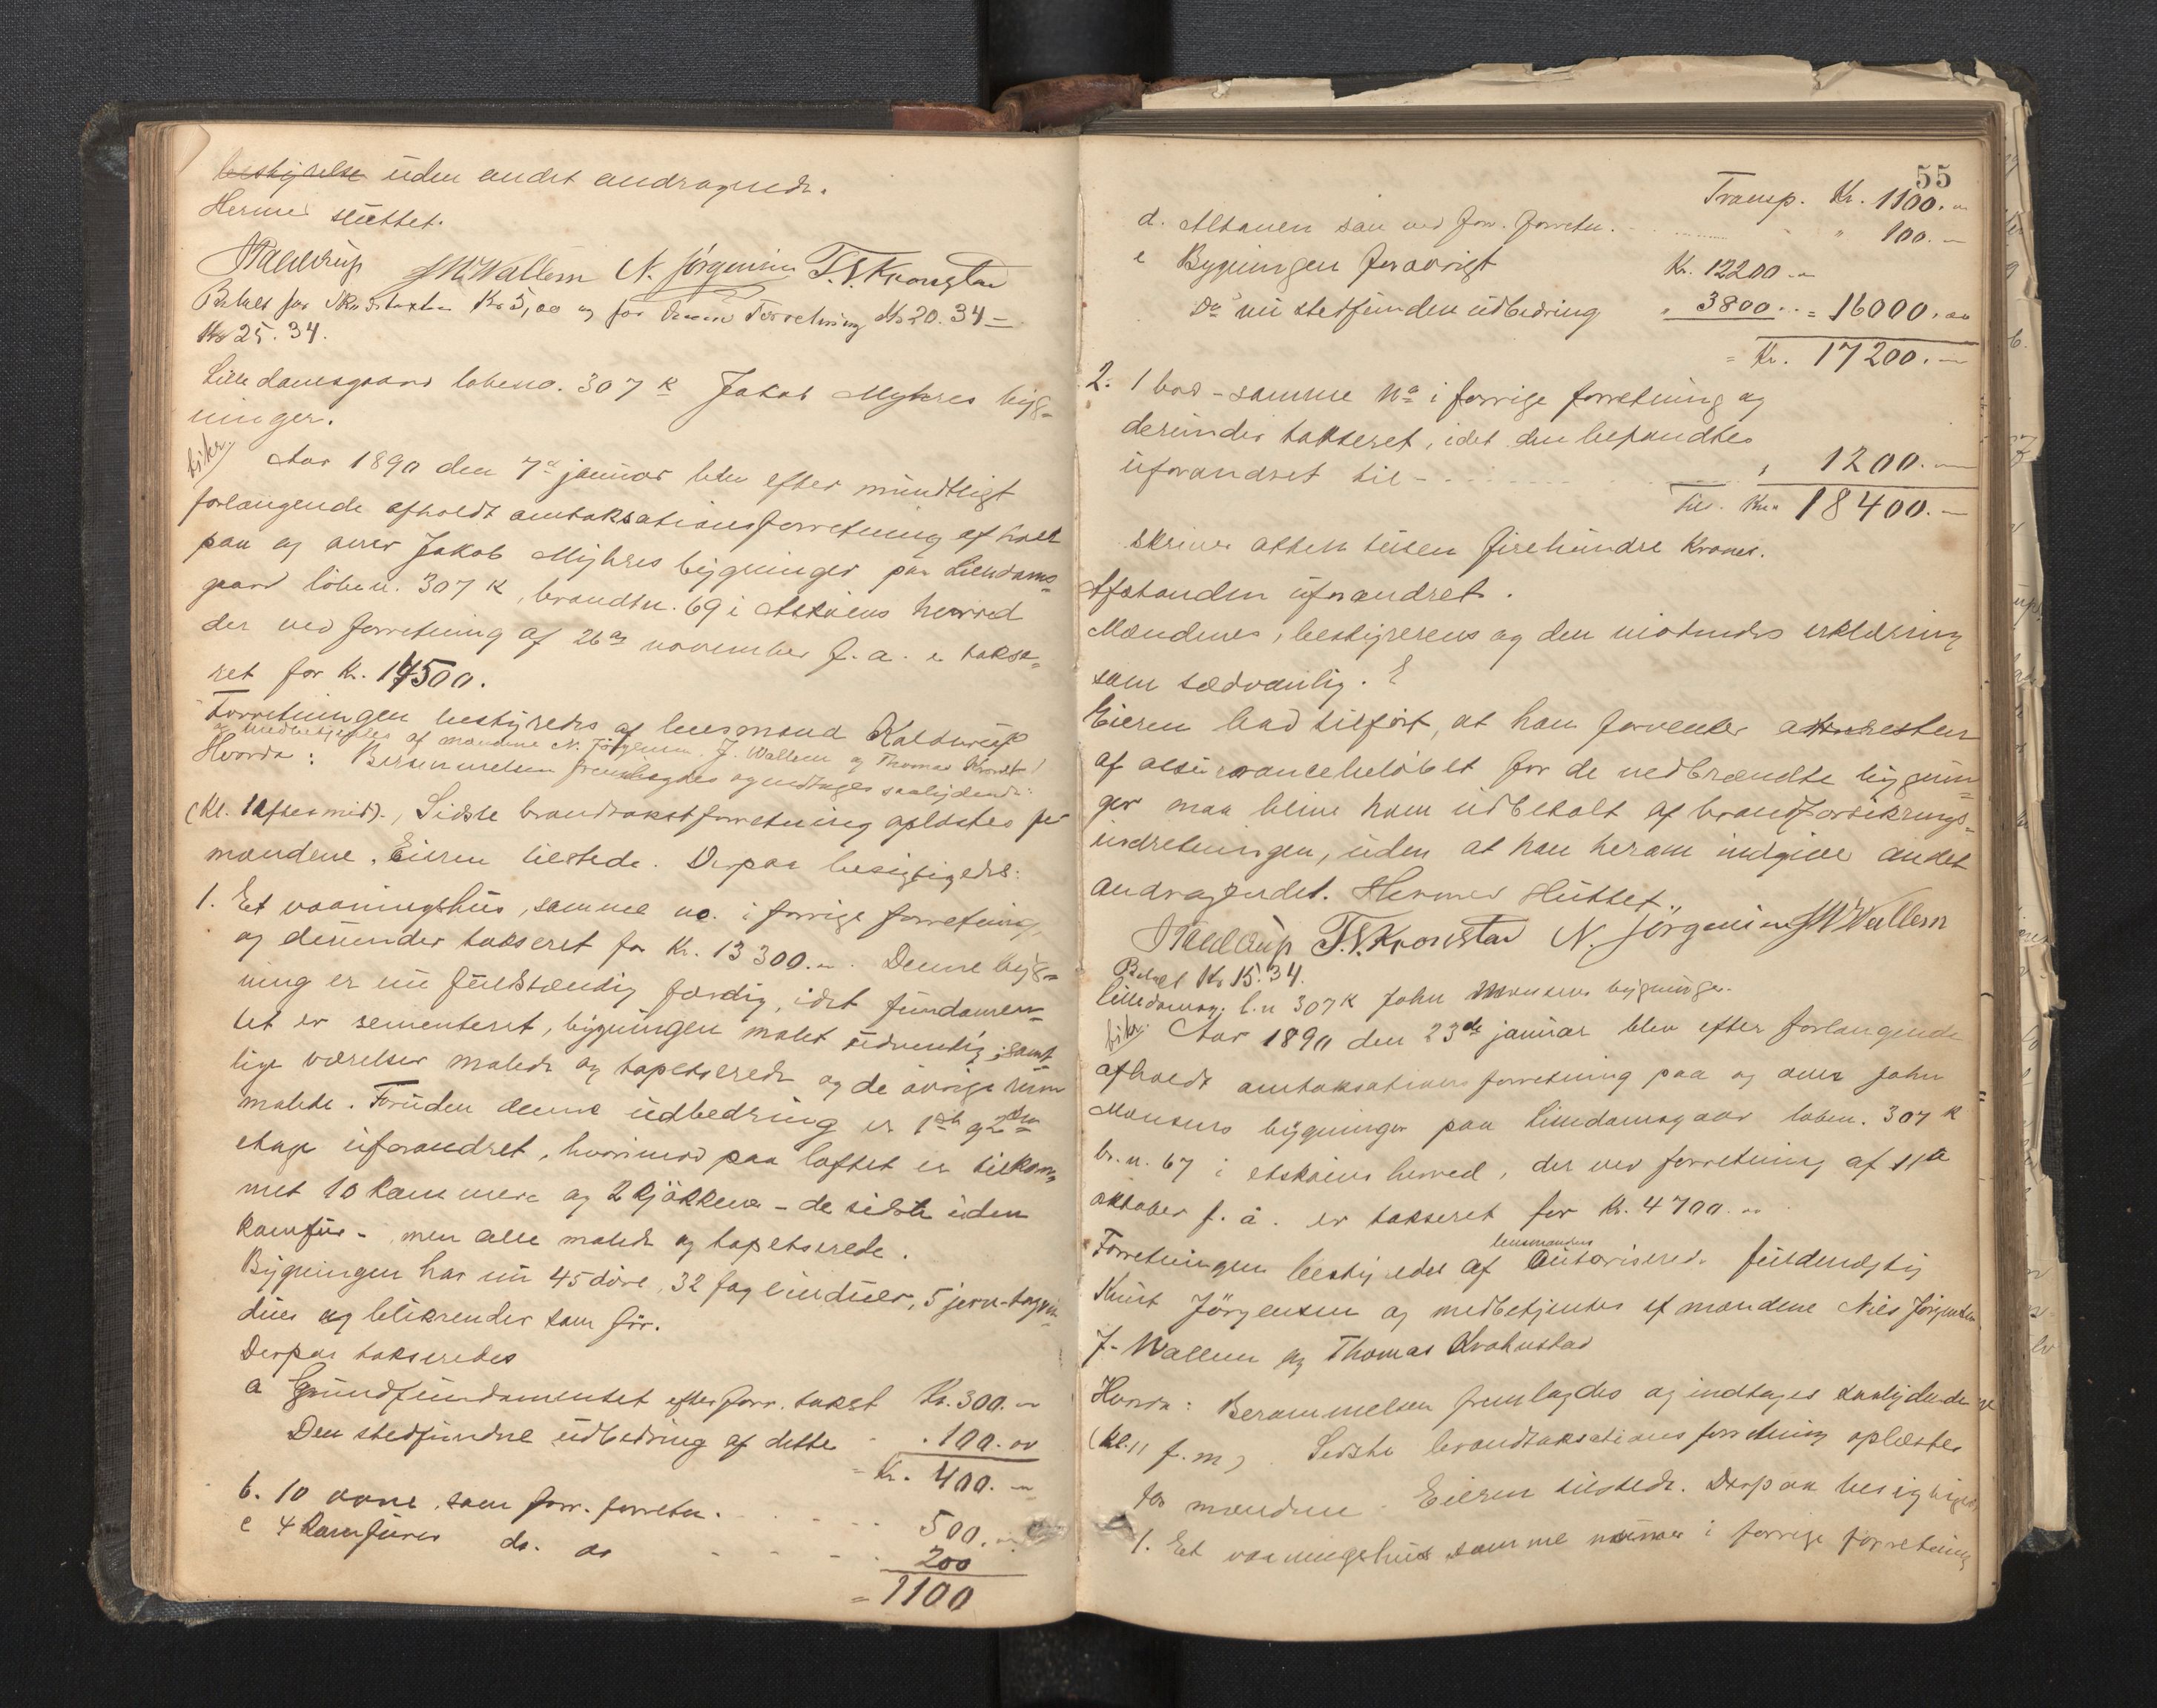 bestyrelse uden andet andragende.
Hermed sluttet.
Kaldrup JW Wallem N. Jörgensen T. N. Kronstad
Betalt for Skudstaxten Kr 5,00 og for denne Forretning Kr 20.34 =
Kr 25.34.
Lille damsgaard løbeno. 307 k Jakob Myhres byg=
ninger.
Aar 1890 den 7de januar blev efter mundtligt
forlangende afholdt omtaksationsforretning af holdt
paa og over Jakob Myhres bygninger paa Lilledams=
gaard løben. 307 K, brandtn. 69 i Askøens herred
der ved forretning af 26de november f. a. er takse=
ret for Kr. 14500.
Forretningen bestyredes af lensmand Kaldrup
og medbetjentes af mændene N. Jörgensen, J. Wallem og Thomas Kronst.
Hvorda: Berammelsen fremlagdes og indtages saalydende:
(Kl. 1 eftermid)., Sidste brandtakstforretning oplæstes for
mændene. Eieren tilstede. Derpaa besigtigedes:
1. Et vaaningshus, samme no. i forrige forretning,
og derunder takseret for Kr. 13300.-. Denne byg=
ning er nu fuldstændig færdig, idet fundamen=
tet er sementeret, bygningen malet udvendig, samt=
lige værelser malede og tapetserede og de øvrige rum
malede. Foruden denne udbedring er 1ste og 2den
etage uforandret, hvorimod paa loftet er tilkom=
met 10 kammere og 2 kjøkkener - de sidste uden
komfur - men alle malede og tapetserede.
Bygningen har nu 45 døre, 32 fag vinduer, 5 jern-tagvin=
duer og blikrender som før.
Derpaa takseredes
a Grundfundamentet efter forr. takst Kr. 300.-
Den stedfundne udbedring af dette - . 100.00
= Kr. 400.-
b. 10 ovne, som forr. forretn. 500.-
c 4 Komfurer do. do 200
= 1100
55
Transp. Kr. 1100.-
d. Altanen som ved forr. forretn. " 100.-
e Bygningen forøvrigt Kr. 12200.-
Do nu stedfunden udbedring " 3800.. = 16000.00
= Kr. 17200.-
2. 1 bod - samme No i forrige forretning og
derunder takseret, idet den befandtes
uforandret til - 1200.-
Til. Kr. 18400.-
skriver atten tusen firehundre Kroner.
Afstanden uforandret.
Mændenes, bestyrerens og den motendes erklæring
som sædvanlig.
Eieren bad tilført, at han forventer at resten
af assuranceheløbet for de nedbrændte bygnin=
ger maa blive ham udbetalt af brandforsikrings=
indretningen, uden at han herom indgiver andet
andragendet. Hermed sluttet.
Kaldrup T. N. Kronstad N. Jörgensen JW Wallem
Betalt Kr 15.34.
Lilledamsg. l.n 307 k John Monsens bygninger.
Aar 1890 den 23de januar blev efter forlangende
afholdt omtaksationsforretning paa og over John
Monsens bygninger paa Lilledamsgaar løben. 307 k
br.n. 67 i Askøens herred, der ved forretning af 11te
oktober f. å. er takseret for Kr. 4700.-
Forretningen bestyredes af lensmandens autoriserede fuldmægtig
Knut Jörgensen og medbetjentes af mændene Nils Jörgensen
J. Wallem og Thomas Krohnstad
Hvorda: Berammelsen fremlagdes og indtages saalydende
(Kl. 11 f.m). Sidste brandtaksationsforretning oplæstes
for mændene. Eieren tilstede. Derpaa besigtiges
1. Et vaaningshus samme nummer i forrige forretning